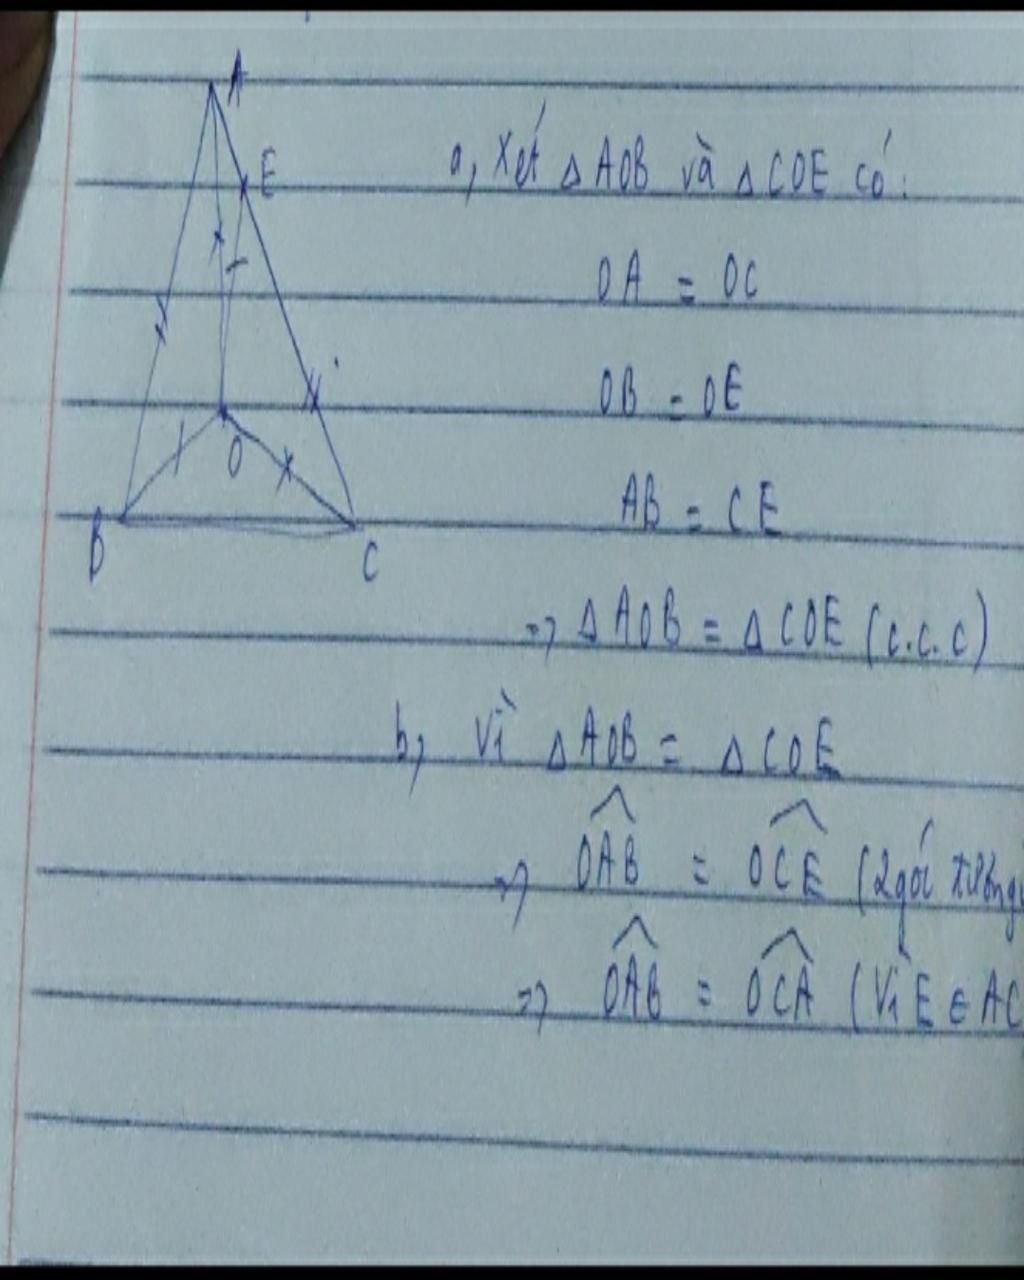 A
E
O
B
C
a, Xét Δ AOB và Δ COE có:
OA = OC
OB = OE
AB = CE
=> Δ AOB = Δ COE (c.c.c)
b, Vì Δ AOB = Δ COE
=> OAB = OCE (2 góc tương
=> OAB = OCA (Vì E ∈ AC